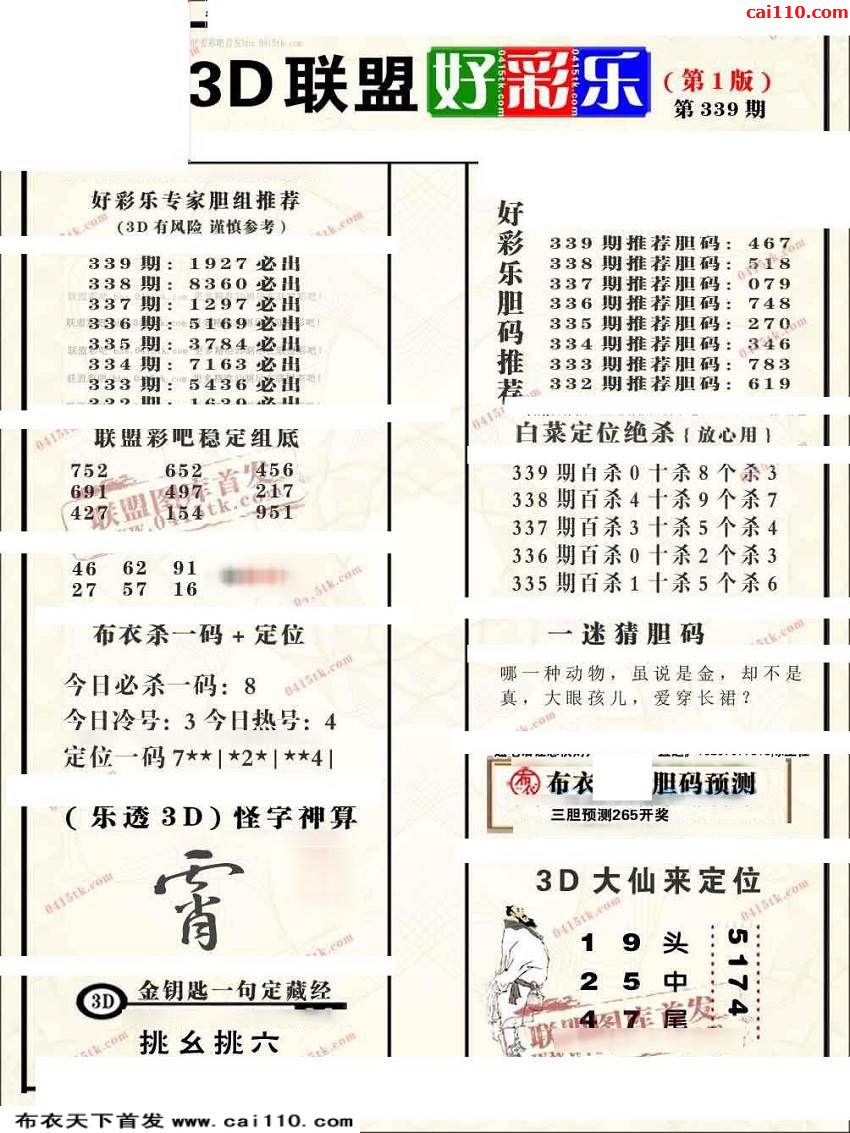 cai110.com
3D联盟好彩乐
(第1版)
第339期
好彩乐专家胆组推荐
(3D有风险 谨慎参考)
339期: 1927必出
338期: 8360必出
337期: 1297必出
336期: 5169必出
335期: 3784必出
334期: 7163必出
333期: 5436必出
联盟彩吧稳定组底
752 652 456
691 497 217
427 154 951
46 62 91
27 57 16
布衣杀一码+定位
今日必杀一码: 8
今日冷号: 3 今日热号: 4
定位一码 7**|*2*|**4|
(乐透3D)怪字神算
霄
3D 金钥匙一句定藏经
挑幺挑六
好彩乐胆码推荐
339期推荐胆码: 467
338期推荐胆码: 518
337期推荐胆码: 079
336期推荐胆码: 748
335期推荐胆码: 270
334期推荐胆码: 346
333期推荐胆码: 783
332期推荐胆码: 619
白菜定位绝杀{放心用}
339期百杀0十杀8个杀3
338期百杀4十杀9个杀7
337期百杀3十杀5个杀4
336期百杀0十杀2个杀3
335期百杀1十杀5个杀6
一迷猜胆码
哪一种动物，虽说是金，却不是
真，大眼孩儿，爱穿长裙？
布 布衣 胆码预测
三胆预测265开奖
3D大仙来定位
1 9 头
2 5 中
4 7 尾
5174
联盟图库首发
www.0415tk.com
0415tk.com
布衣天下首发 www.cai110.com